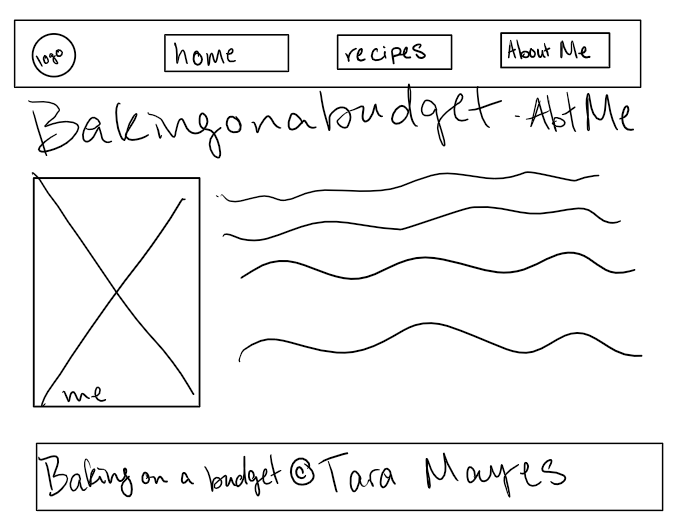 logo home recipes About Me
Bakingonabudget - Abt Me
me
Baking on a budget © Tara Mayes